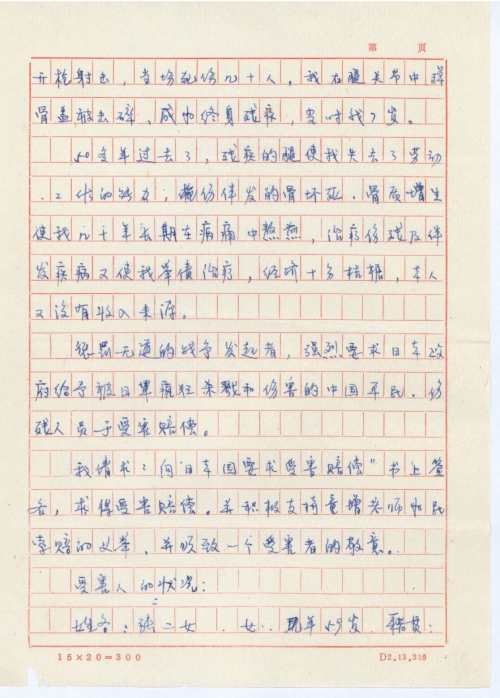 第 页
开枪射击，当场死伤几十人，我右腿关节中弹
骨盖被击碎，成为终身残疾，当时我7岁。
50多年过去了，残疾的腿使我失去了劳动
工作的能力；枪伤伴发的骨坏死、骨质增生
使我几十年长期在病痛中熬煎，治疗伤残及伴
发疾病又使我举债治疗，经济十分桔槠，本人
又没有收入来源。
惩罚无道的战争发起者，强烈要求日本政
府给予被日军疯狂杀戮和伤害的中国军民、伤
残人员予受害赔偿。
我请求：向"日本国要求受害赔偿"书上签
名，求得受害赔偿。并积极支持童增老师为民
索赔的义举，并顺致一个受害者的敬意。
受害人的状况：
姓名：张二女 女 现年59岁 籍贯：
15×20=300 D2.13.319